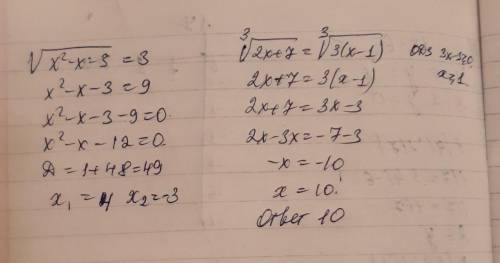 √x²-x-3 = 3
x²-x-3 = 9
x²-x-3-9=0.
x²-x-12=0.
D=1+48=49
x₁ = 4 x₂=-3
∛2x+7 = ∛3(x-1)
2x+7 = 3(x-1)
2x+7 = 3x-3
2x-3x=-7-3
-x = -10
x = 10.
Ответ 10
ОДЗ